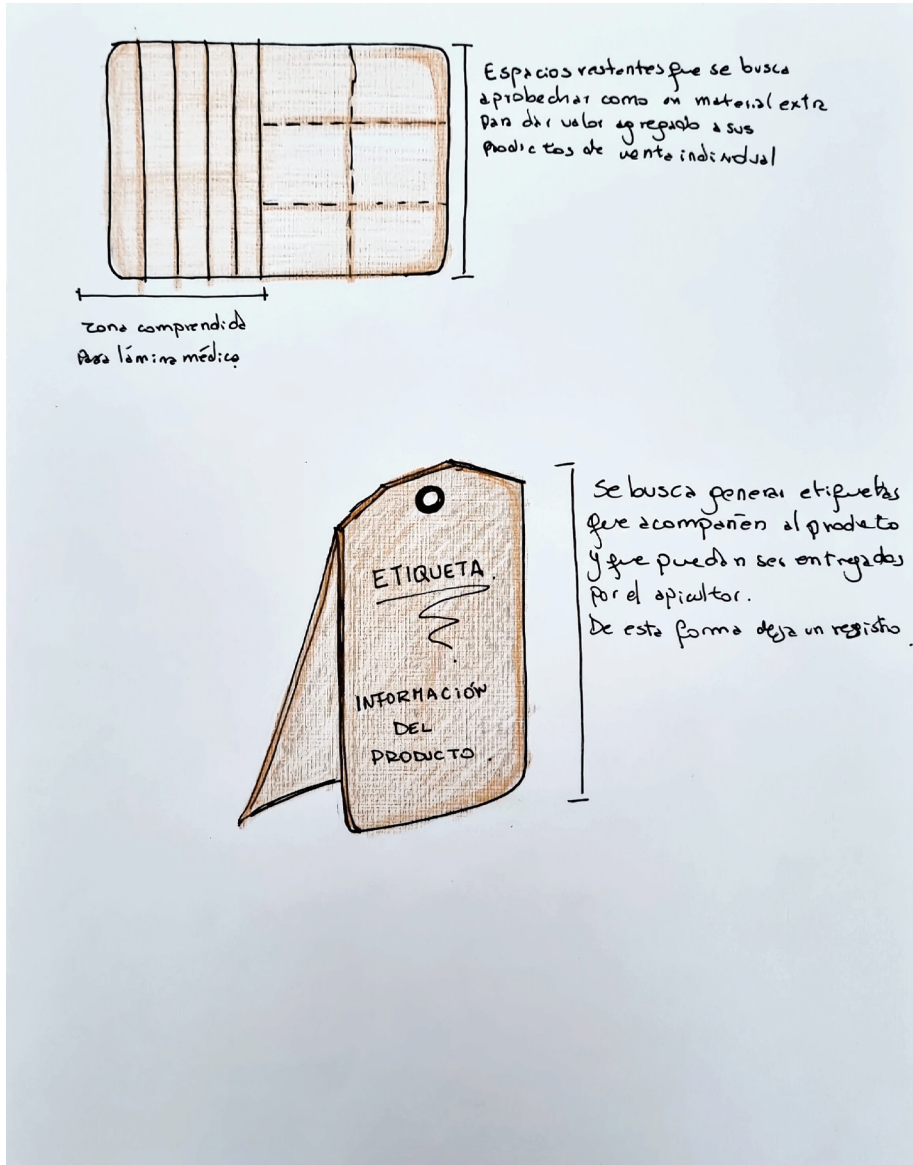 Espacios restantes que se busca
aprobechar como un material extra
para dar valor agregado a sus
productos de venta individual
zona comprendida
para lámina médica
ETIQUETA.
INFORMACIÓN
DEL
PRODUCTO.
Se busca generar etiquetas
que acompañen al produto
y que puedan ser entregados
por el apicultor.
De esta forma deja un registro.